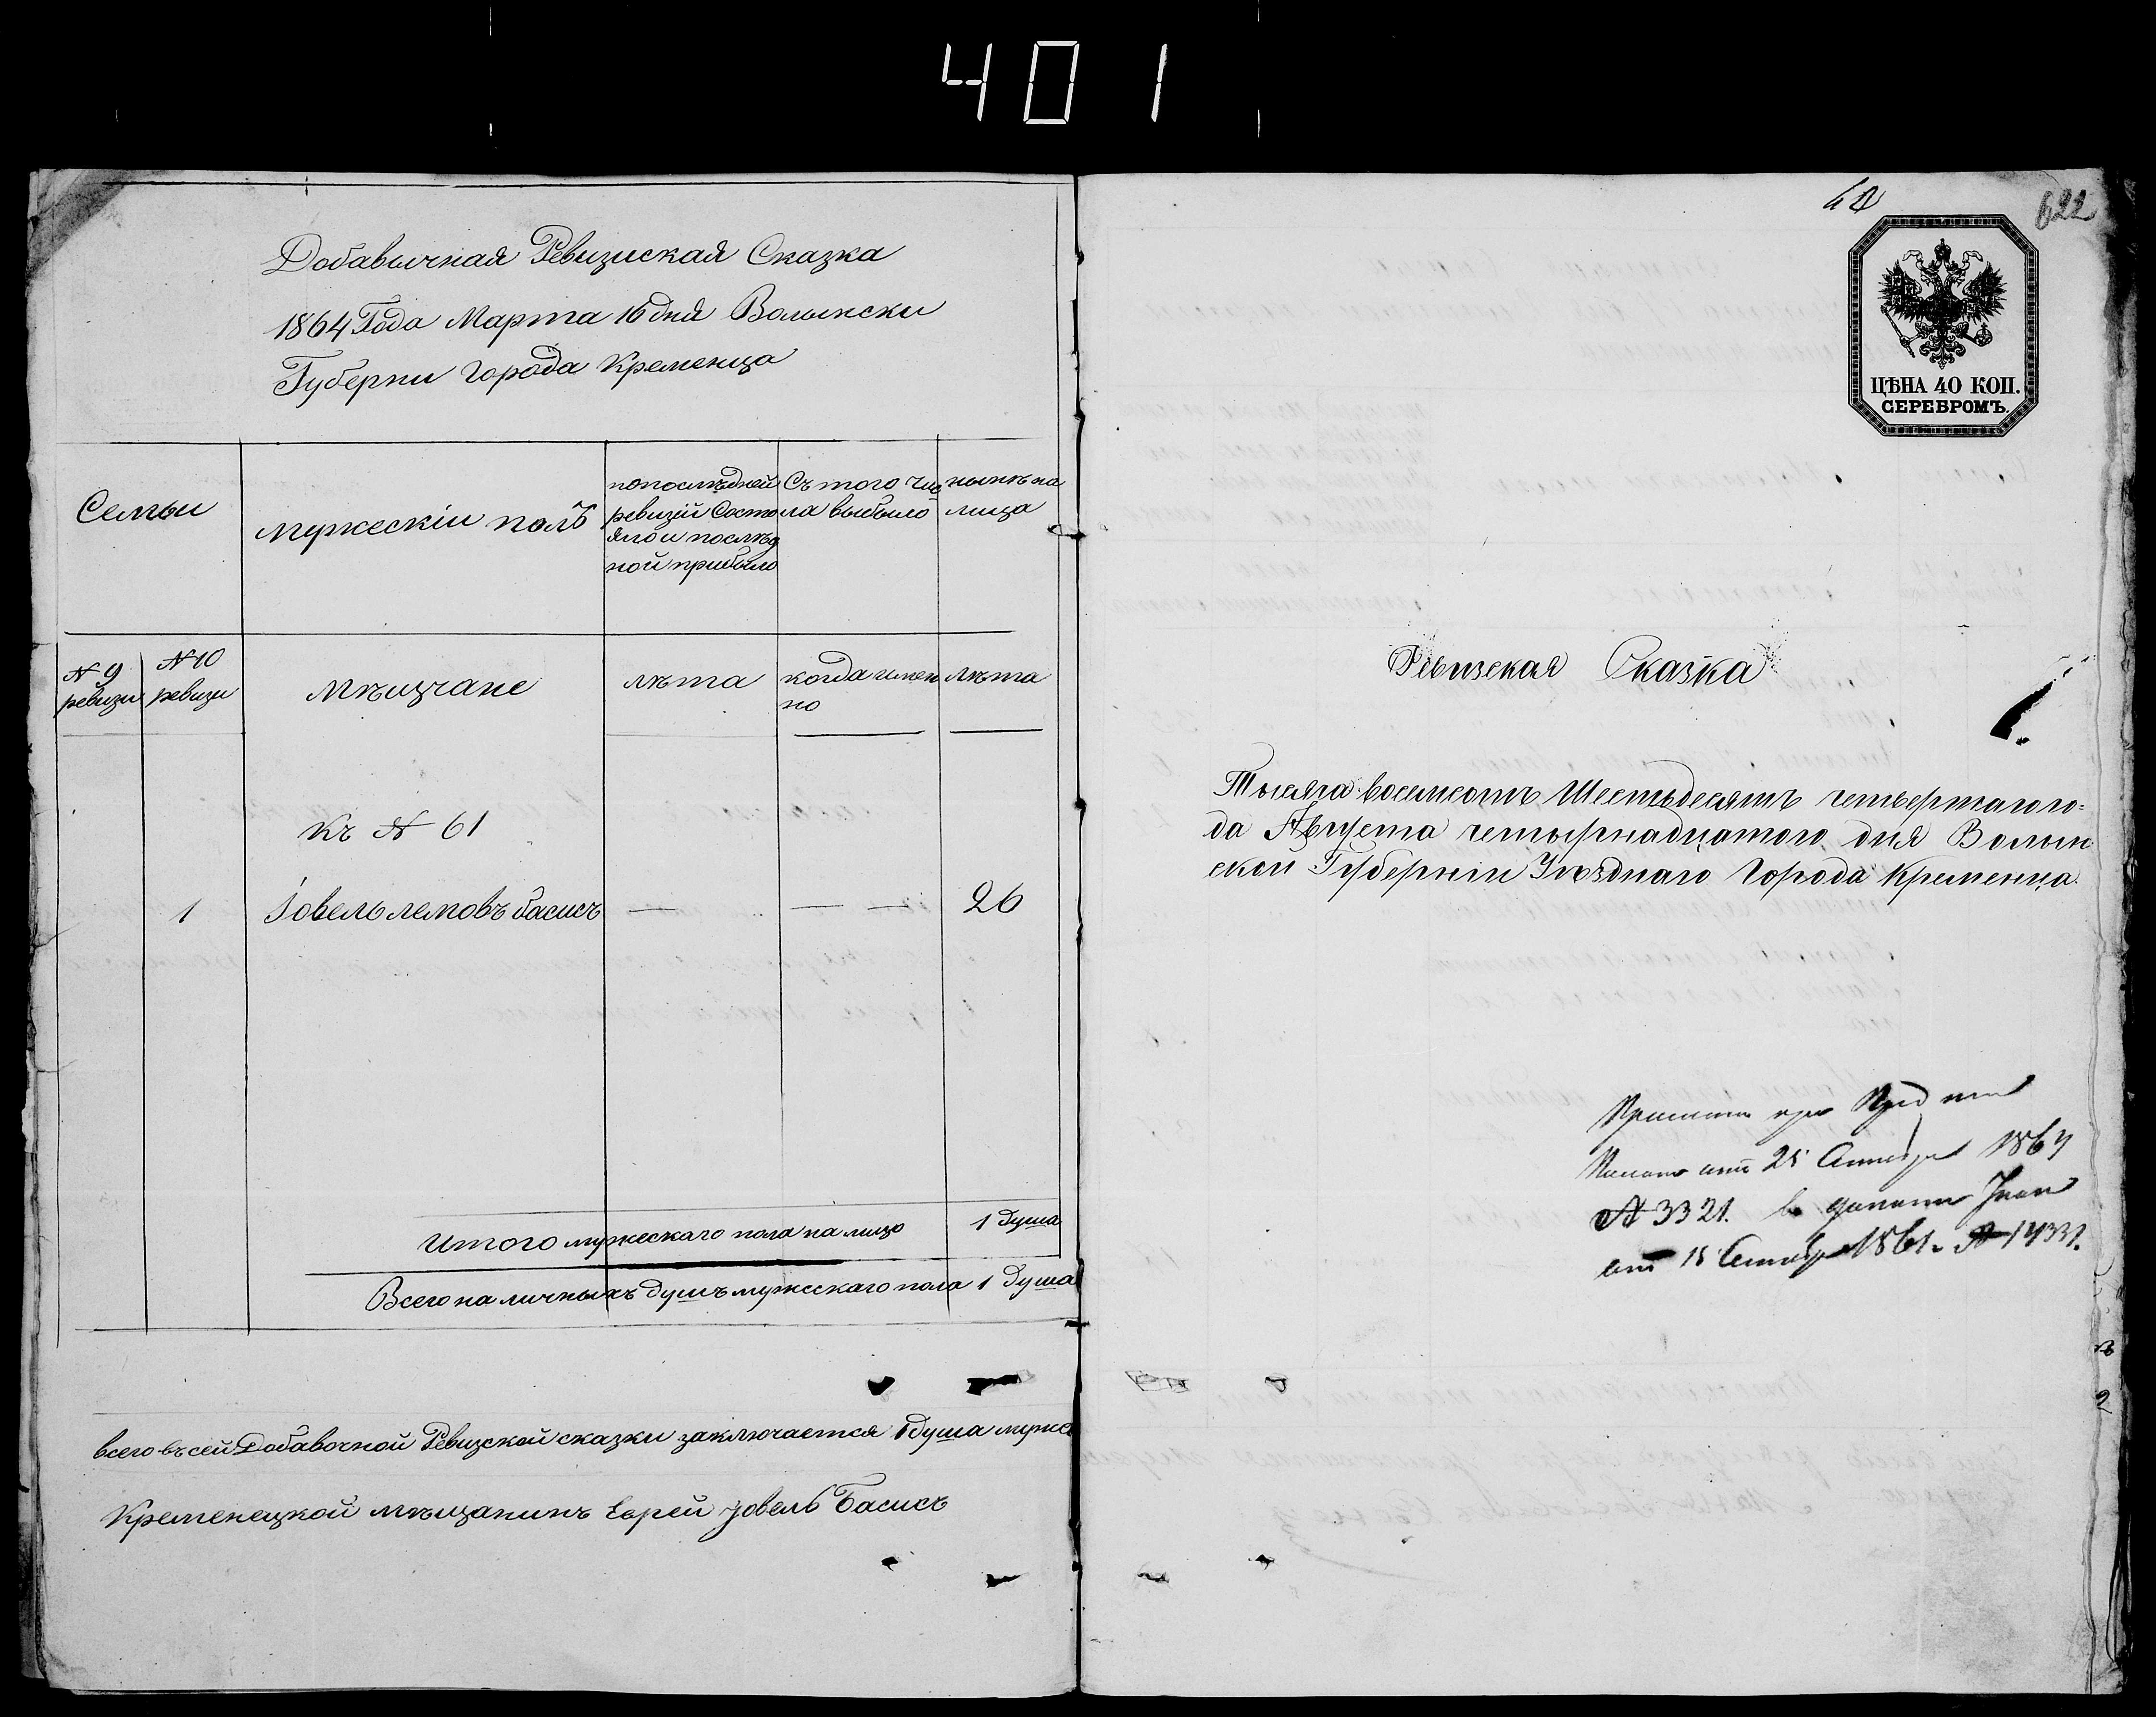 401
Добавычная Ревизиская Сказка
1864 Года Марта 16 дня Волынски
Губерни города Кременца
Семьи
мужескіи полъ
попослѣдней
ревизіи Состо
яло и послѣд
ной прибыло
Съ того чис
ла выбыло
нынѣ на
лицо
№ 9
ревизи
№ 10
ревизи
мѣщчане
лѣта
когда имен
но
лѣта
къ № 61
1 Іовель лемовъ басисъ — — — 26
Итого мужескаго пола на лицо 1 душа
Всего на личныхъ душъ мужескаго пола 1 душа
всего въ сей Добавочной Ревизской сказки заключается 1 душа мужс
Кременецкой мѣщанинъ Еврей Іовель Басисъ
622
ЦѢНА 40 КОП.
СЕРЕБРОМЪ.
Ревизская Сказка
Тысяча восемсотъ Шестьдесятъ четвертаго го-
да Августа четырнадцатого дня Волын
ской Губерніи Уѣзднаго Города Кременца.
при
25 1864
№ 3321.
отъ 15 1861 № 14331.